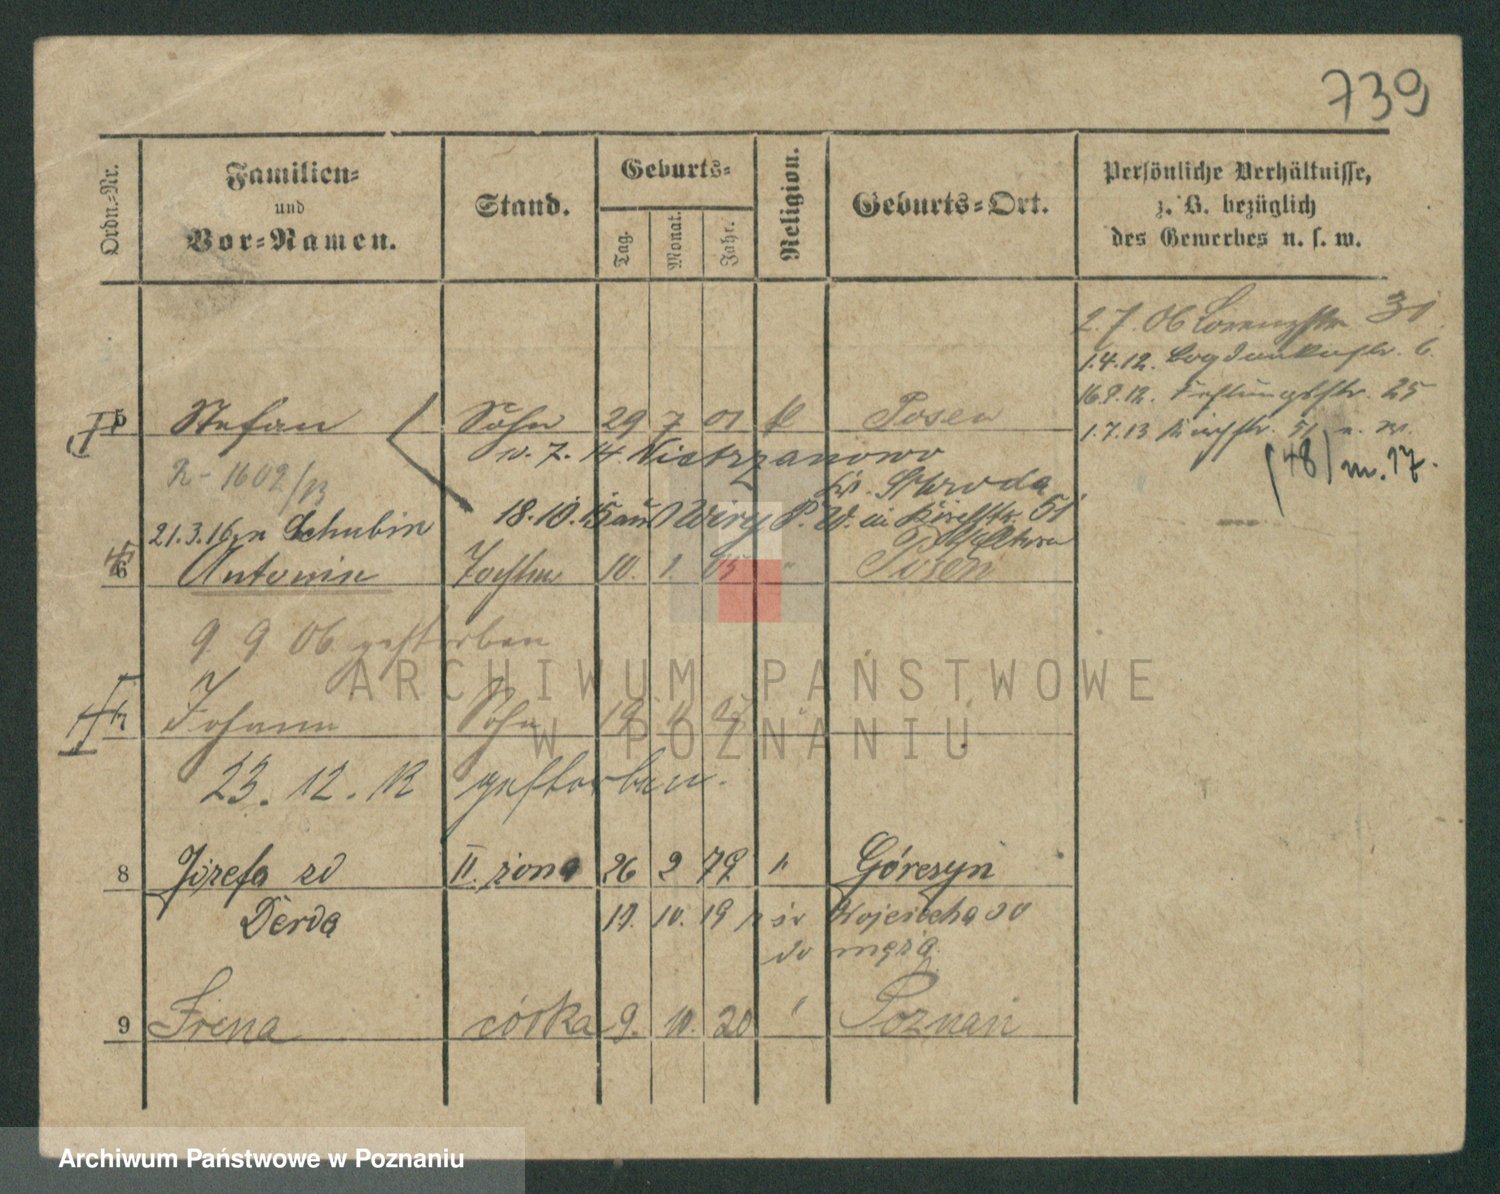 739
Ordn.-Nr.
Familien-
und
Vor-Namen.
Stand.
Geburts-
Tag.
Monat.
Jahr.
Religion.
Geburts-Ort.
Persönliche Verhältnisse,
z. B. bezüglich
des Gewerbes u. s. w.
2.7.06 Lorenzstr. 31
1.4.12. Bogdankastr. 6.
16.9.12. Festungsstr. 25
1.7.13 Kirchstr. 51
(48) m. 17.
5 Stefan Sohn 29 7 01 k Posen
n. 7. 14. Nietrzanowo
Kr. Schroda
R-1602/13
18.10.15 aus Wiry P. W. in Kirchstr. 51
21.3.16 n Schubin
6 Antonin Tochter 10. 1. 05 " Posen
9 9 06 gestorben
7 Johann Sohn 19 "
23. 12. 12 gestorben.
8 Józefa zd II. żona 26 2 79 " Górczyn
Derda 11. 10. 19 Wojciecha 30
do męża
9 Irena córka 9. 10. 20 " Poznań
ARCHIWUM PAŃSTWOWE
W POZNANIU
Archiwum Państwowe w Poznaniu